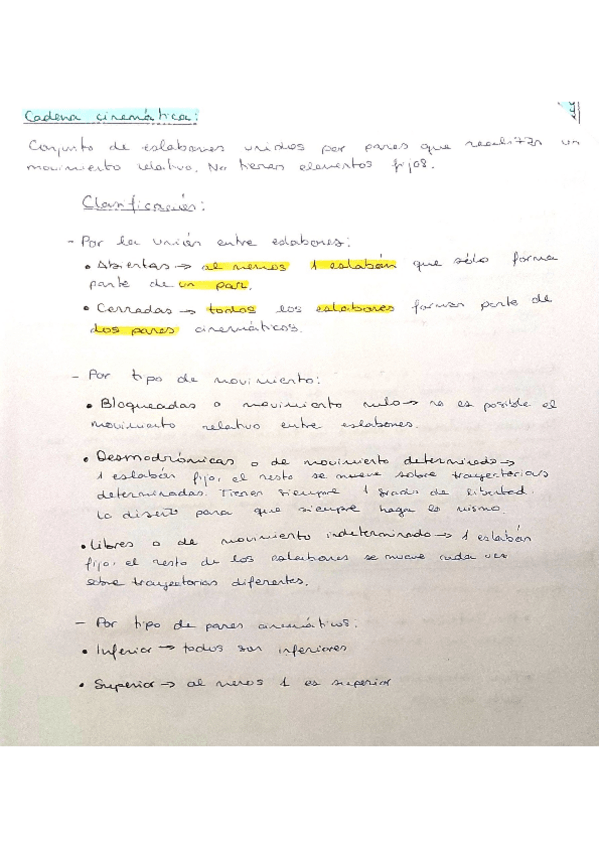 Cadena cinemática:
Conjunto de eslabones unidos por pares que realizan un
movimiento relativo. No tienen elementos fijos.
Clasificación:
- Por la unión entre eslabones:
• Abiertas → al menos 1 eslabón que sólo forma
parte de un par.
• Cerradas → todos los eslabones forman parte de
dos pares cinemáticos.
- Por tipo de movimiento:
• Bloqueadas o movimiento nulo → no es posible el
movimiento relativo entre eslabones.
• Desmodrómicas o de movimiento determinado →
1 eslabón fijo, el resto se mueve sobre trayectorias
determinadas. Tienen siempre 1 grado de libertad.
Lo diseño para que siempre haga lo mismo.
• Libres o de movimiento indeterminado → 1 eslabón
fijo, el resto de los eslabones se mueve cada vez
sobre trayectorias diferentes.
- Por tipo de pares cinemáticos:
• Inferior → todos son inferiores
• Superior → al menos 1 es superior